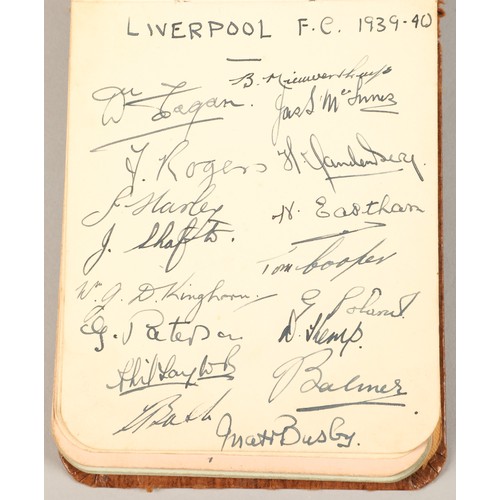 LIVERPOOL F.C. 1939-40
B. Nieuwenhuys
Wm Fagan.
Jas S McInnes
F. Rogers
H Vandenberg.
J Harley
H. Eastham
J. Shafto.
Tom Cooper
Wm G. D. Kinghorn
G Poland.
G. Paterson
D. Kemp.
Phil Taylor
Balmer
L Bush
Matt Busby.